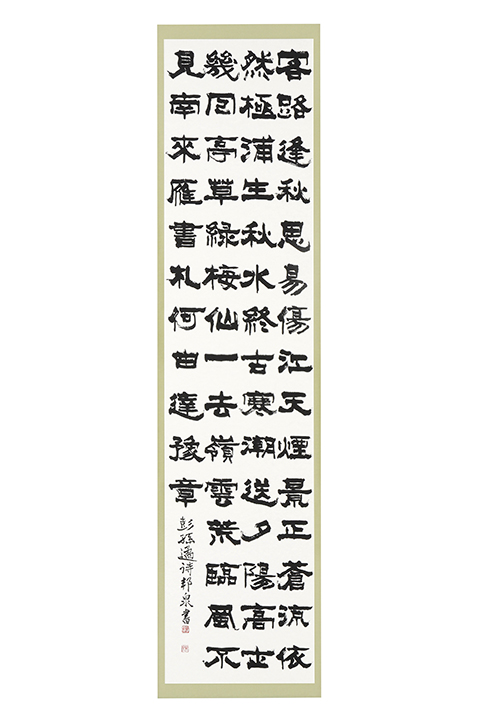 客路逢秋思易傷江天煙景正蒼流依
然極浦生秋水終古寒潮送夕陽高士
幾回亭草綠梅仙一去嶺雲荒臨風不
見南來雁書札何由達豫章
彭孫遹詩邦泉書